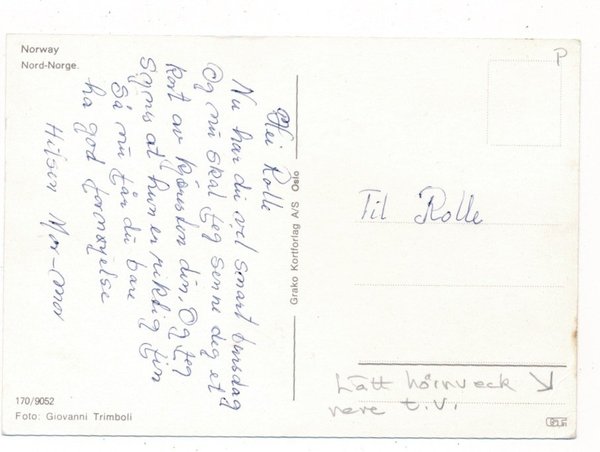 Norway
Nord-Norge.
Hei Rolle
Nu har du vel snart bursdag
Og nu skal jeg senne deg et
kort av kjæresten din, Og jeg
Synes at hun er riktig fin
Så nu får du bare
ha god fornøyelse
Hilsen Mor-mor
Grako Kortforlag A/S Oslo
170/9052
Foto: Giovanni Trimboli
P
Til Rolle
Lätt hörnveck
nere t.v.